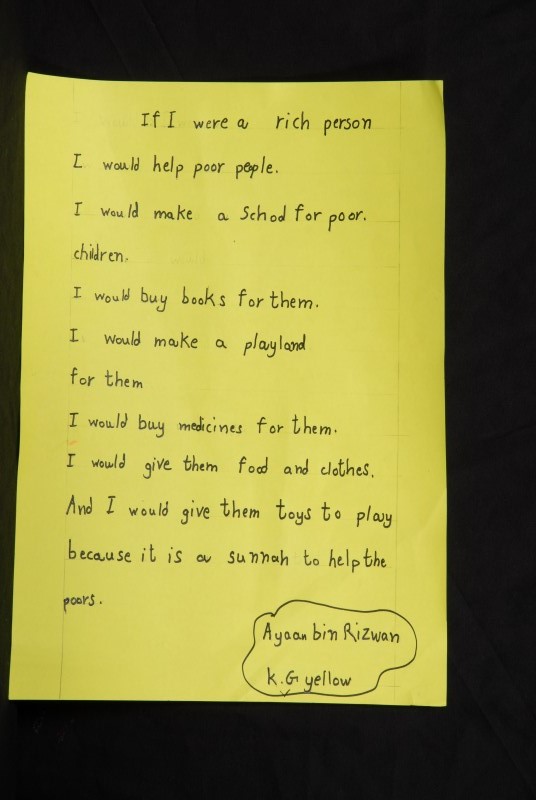 If I were a rich person
I would help poor people.
I would make a School for poor.
children.
I would buy books for them.
I would make a playland
for them
I would buy medicines for them.
I would give them food and clothes.
And I would give them toys to play
because it is a sunnah to help the
poors.
Ayaan bin Rizwan
K.G yellow